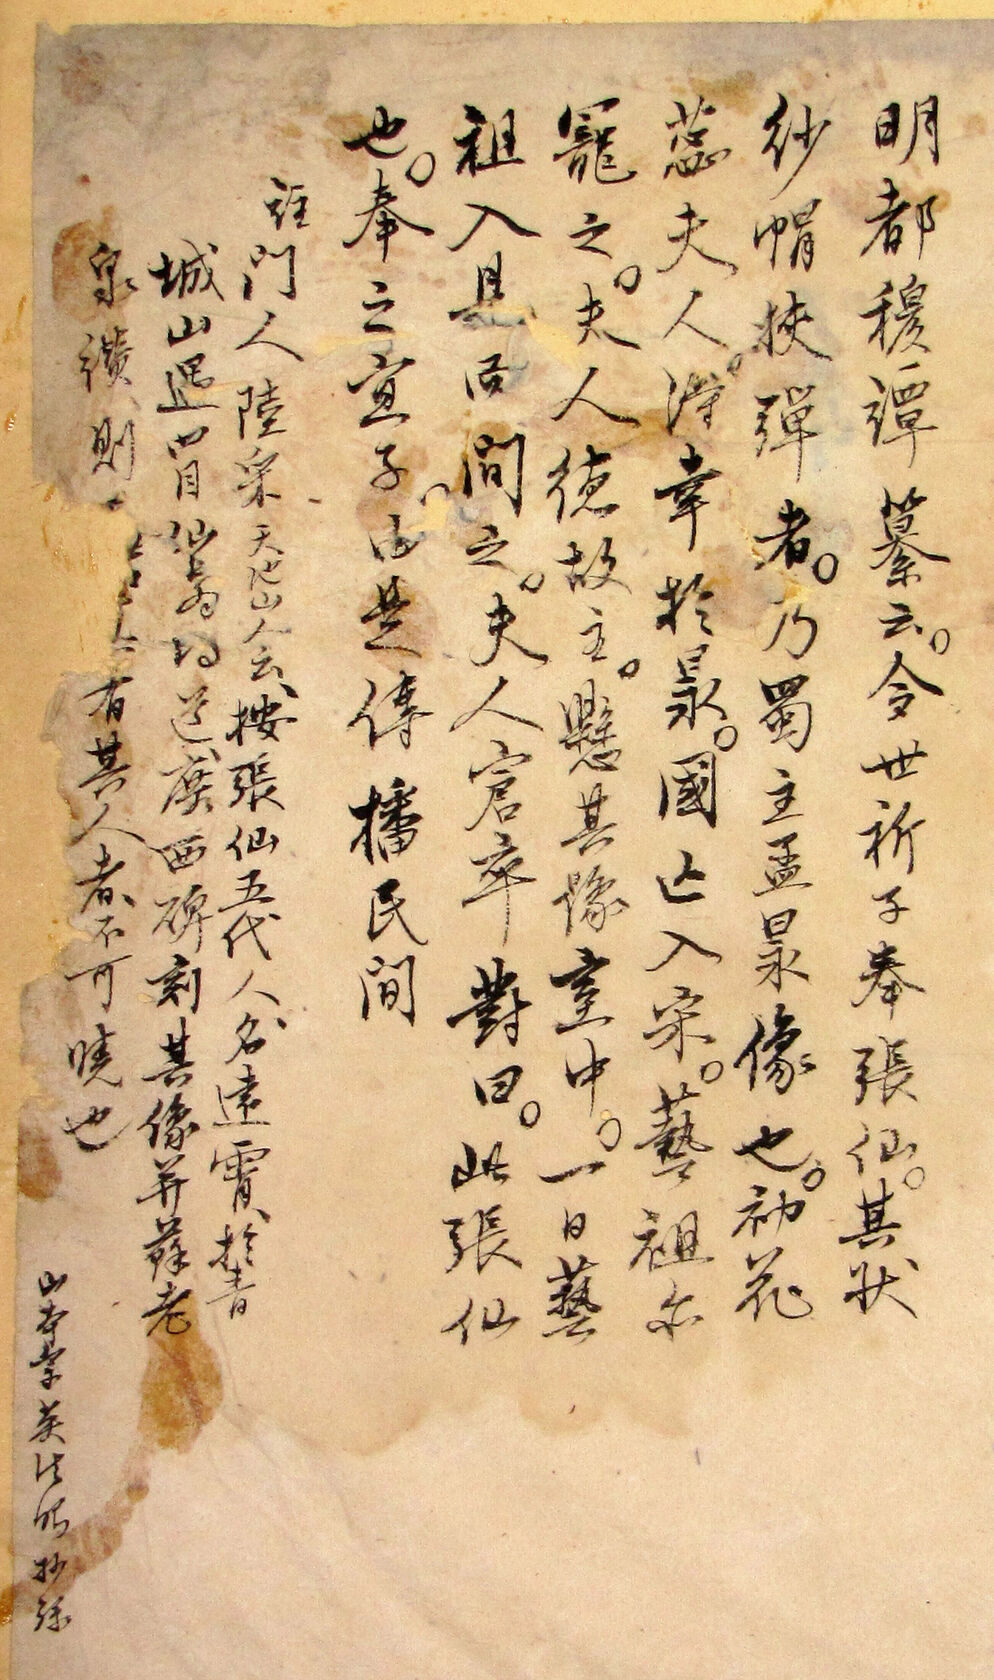 明都穆譚纂云。今世祈子奉張仙。其狀
紗帽挾彈者。乃蜀主孟昶像也。初花
蕊夫人。得幸於昶。國亡入宋。藝祖亦
寵之。夫人德故主。懸其像室中。一日藝
祖入見而問之。夫人窘卒對曰。此張仙
也。奉之宜子。由是傳播民間
註門人陸采天池山人云、按張仙五代人名遠霄、於青
城山遇四目仙翁得道、廣西碑刻其像并蘇老
泉讚、則 有其人者、不可曉也
山本宗英法眼抄録